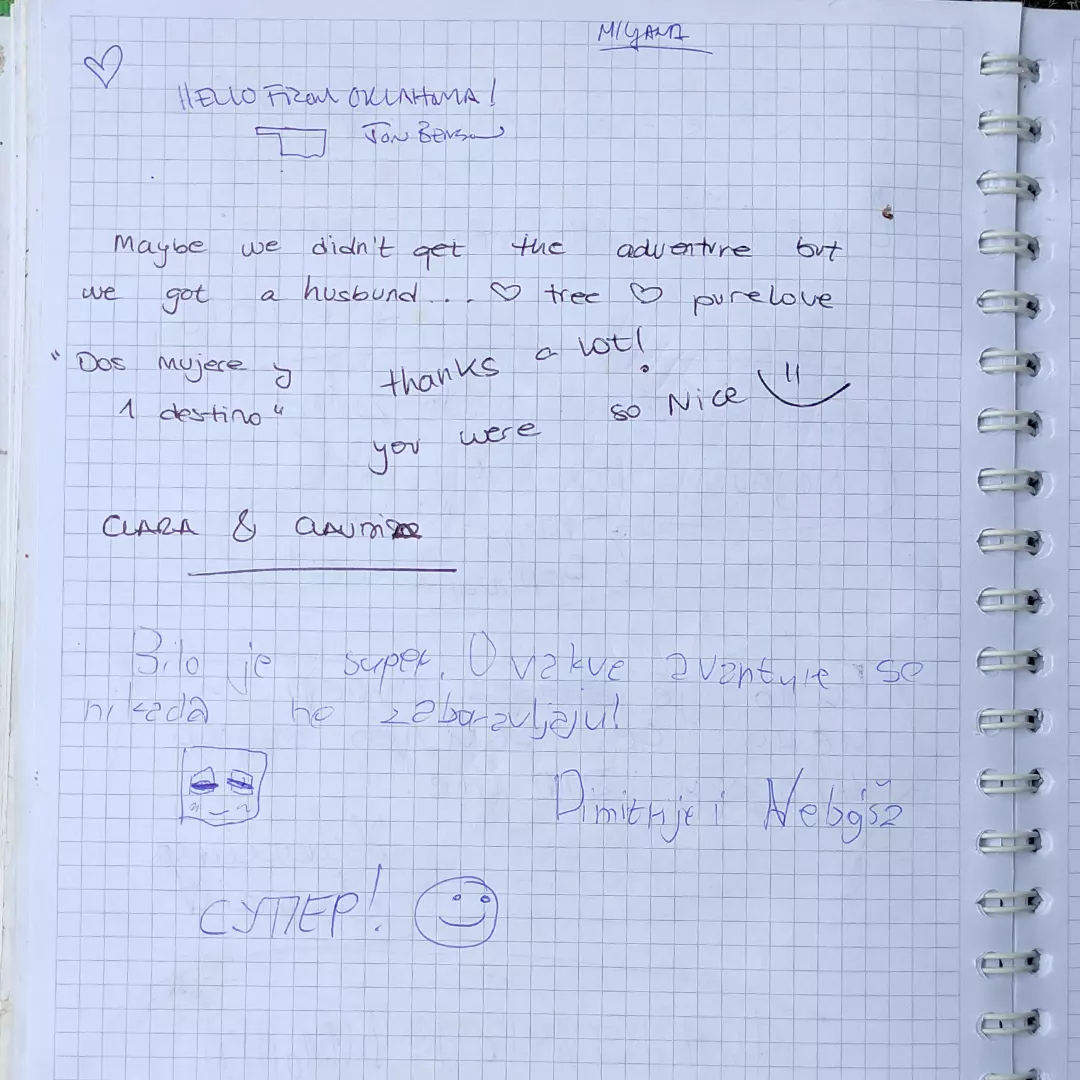 HELLO FROM OKLAHOMA!
Jon Benson
Maybe we didn't get the adventure but
we got a husbund... ♡ tree ♡ purelove
"Dos mujere y
1 destino"
thanks a lot!
you were so Nice
CLARA &
Bilo je super. Ovakve avanture se
nikada ne zaboravljaju!
Dimitrije i Nebojša
СУПЕР!